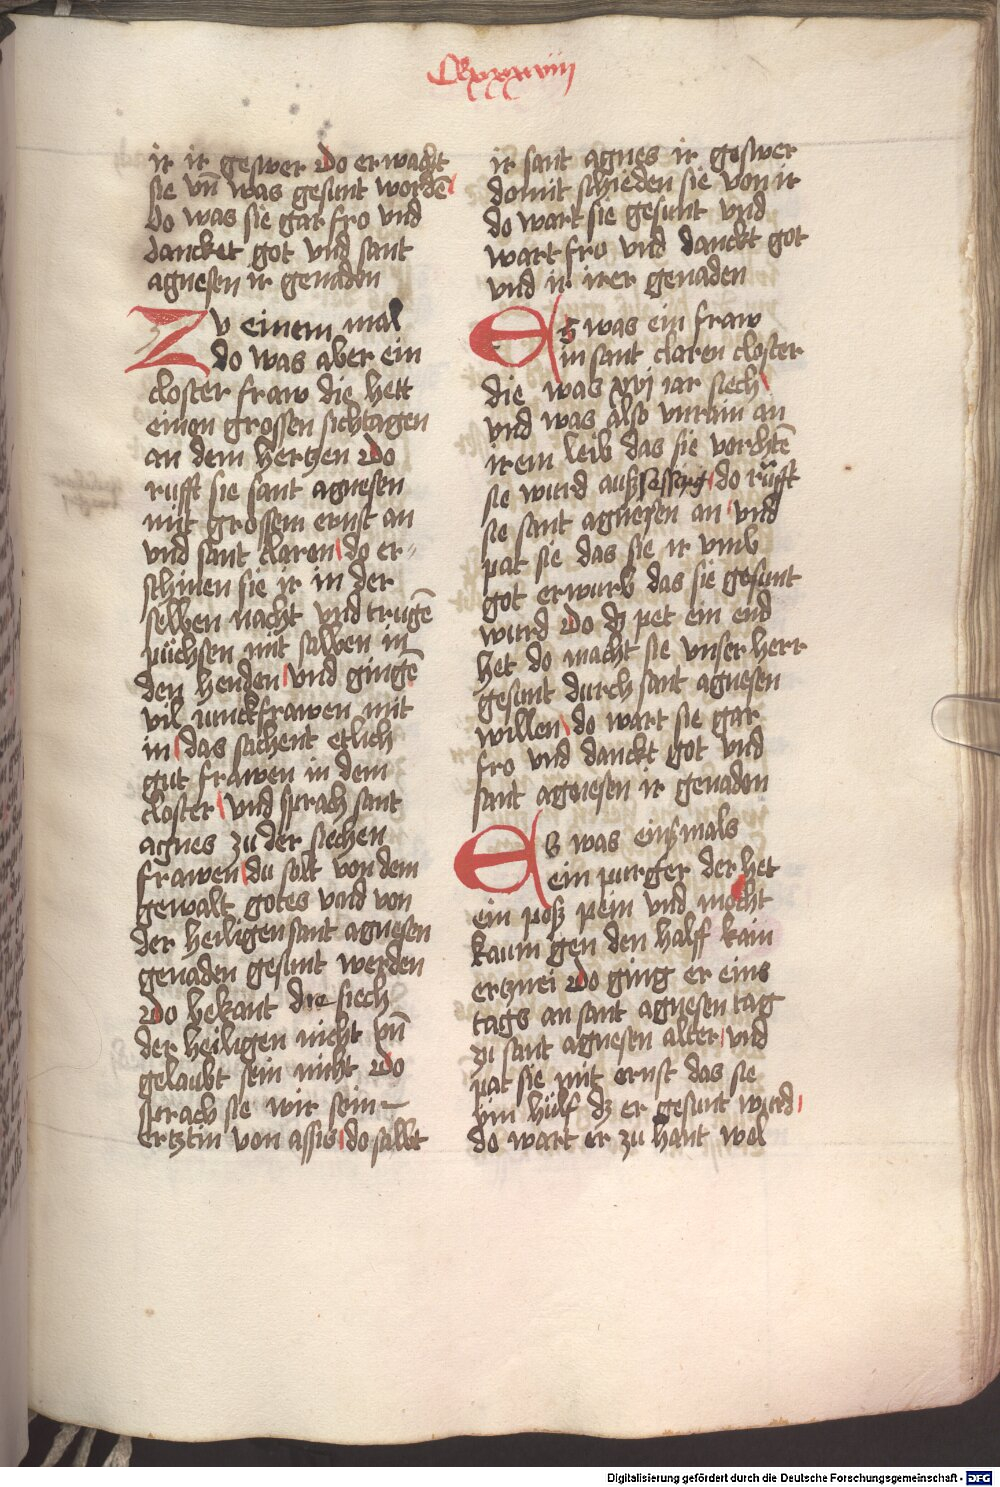 Clxxxxviiij
ir ir geswer Do erwacht
sie vn̄ was gesunt wordē
Do was sie gar fro vnd
dancket got vnd sant
agnesen ir genaden
Zv einem mal
do was aber ein
closter fraw die hett
einen grossen sichtagen
an dem hertzen Do
rufft sie sant agnesen
mit grossem ernst an
vnd sant claren do er⸗
schinen sie ir in der
selben nacht vnd trugē
püchsen mit salben in
den henden vnd gingē
vil iunckfrawen mit
in das sachent etlich
gut frawen in dem
closter vnd sprach sant
agnes zu der siechen
frawen du solt von dem
gewalt gotes vnd von
der heiligen sant agnesen
genaden gesunt werden
Do bekant die siech
der heiligen nicht vn̄
gelaubt sein nicht Do
sprach sie wir sein
ertztin von assis do salbt
ir sant agnes ir geswer
domit schieden sie von ir
do wart sie gesunt vnd
wart fro vnd danckt got
vnd ir irer genaden
Es was ein fraw
in sant claren closter
die was xvj iar siech
vnd was also vnrain an
irem leib das sie vorchtē
sie wurd außsesserg do rufft
sie sant agnesen an vnd
pat sie das sie ir vmb
got erwurb das sie gesunt
wurd Do dz pet ein end
het do macht sie vnser herr
gesunt durch sant agnesen
willen do wart sie gar
fro vnd danckt got vnd
sant agnesen ir genaden
Es was einsmals
ein purger der het
ein poß pein vnd mocht
kaum gen den halff kain
ertznei Do ging er eins
tags an sant agnesen tag
zu sant agnesen alter vnd
pat sie mit ernst das sie
ym hülf dz er gesunt wurd
do wart er zu hant wol
Digitalisierung gefördert durch die Deutsche Forschungsgemeinschaft - DFG